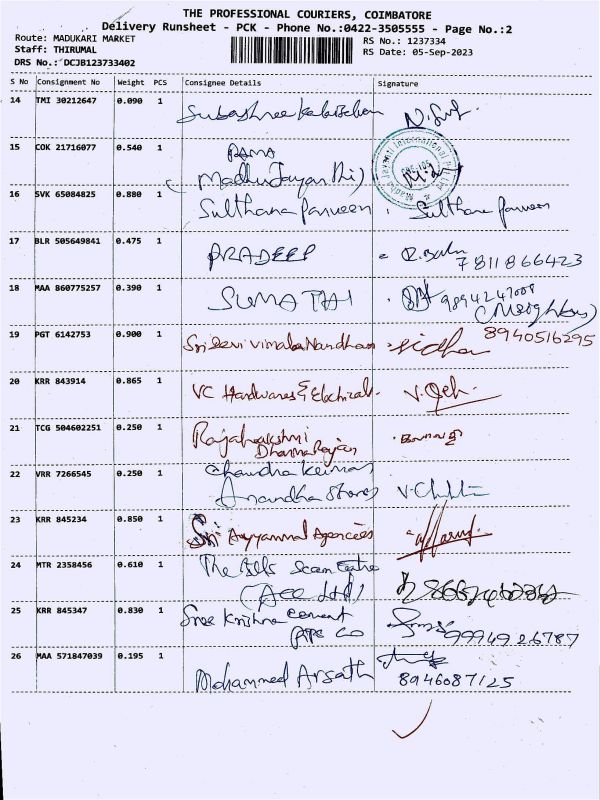 THE PROFESSIONAL COURIERS, COIMBATORE
Delivery Runsheet - PCK - Phone No.:0422-3505555 - Page No.:2
Route: MADUKARI MARKET
RS No.: 1237334
Staff: THIRUMAL
RS Date: 05-Sep-2023
DRS No.: DCJB123733402
S No Consignment No Weight PCS Consignee Details Signature
14 TMI 30212647 0.090 1 Subashree
15 COK 21716077 0.540 1 RAMA
(Madhu Jayanthi)
16 SVK 65084825 0.880 1 Sulthana parveen Sulthana parveen
17 BLR 505649841 0.475 1 PRADEEP 7811866423
18 MAA 860775257 0.390 1 SUMATHI 9894247008
(Neighbour)
8940516295
19 PGT 6142753 0.900 1 Sridevi vimala Nandhan
20 KRR 843914 0.865 1 VC Hardwares & Electrical
21 TCG 504602251 0.250 1 Rajalakshmi
Dharma Rajan
22 VRR 7266545 0.250 1 Chandra kumar
Anandha Stores
23 KRR 845234 0.850 1 Sri Ayyammal Agencies
24 MTR 2358456 0.610 1 The
(Acc Ltd)
25 KRR 845347 0.830 1 Sree Krishna cement
CO 9994926787
26 MAA 571847039 0.195 1 Mohammed Arsath 8946087125